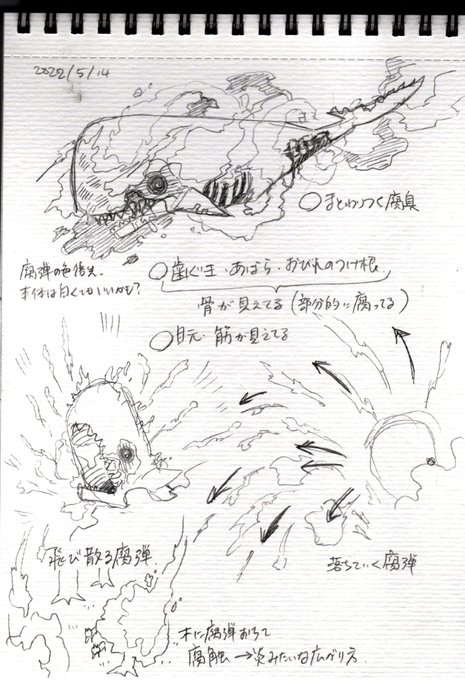 2022/5/14
○まとわりつく腐臭
腐弾の色借り、
本体は白くてもいいかも?
○歯ぐき・あばら・おびれのつけ根、
骨が見えてる(部分的に腐ってる)
○目元、筋が見えてる
飛び散る腐弾
落ちていく腐弾
木に腐弾おちて
腐触→炎みたいな広がり方